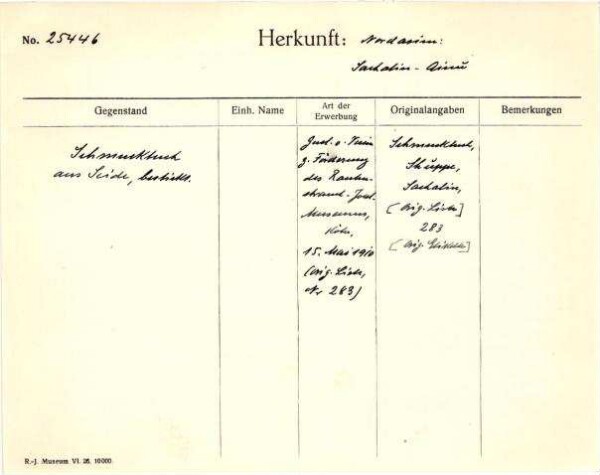 No. 25446
Herkunft: Nordasien:
Sachalin-Ainu
Gegenstand
Einh. Name
Art der
Erwerbung
Originalangaben
Bemerkungen
Schmucktuch
aus Seide, bestickt.
z. Förderung
des Rauten-
strauch-Joest
Museums,
Köln,
15. Mai 1910
(Orig. Liste,
Nr 283)
Schmucktuch,
Sachalin,
[Orig. Liste]
283
[Orig. Etikette]
R.-J. Museum VI. 26. 10000.